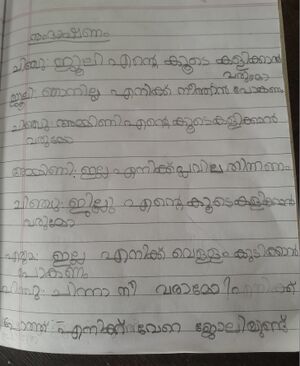 സംഭാഷണം
ചിഞ്ചു: ജൂലി എന്റെ കൂടെ കളിക്കാൻ
വരുമോ
ജൂലി: ഞാനില്ല എനിക്ക് നീന്തിൻ പോകണം
ചിഞ്ചു: അമ്മിണി എന്റെ കൂടെ കളിക്കാൻ
വരുമോ
അമ്മിണി: ഇല്ല എനിക്ക് പ്ലാവില തിന്നണം
ചിഞ്ചു: എന്റെ കൂടെ കളിക്കാൻ
വരുമോ
ഇല്ല എനിക്ക് വെള്ളം കുടിക്കാൻ
പോകണം
ചിഞ്ചു: ചിന്നാ നീ വരാമോ
എനിക്ക് വേറെ ജോലിയുണ്ട്